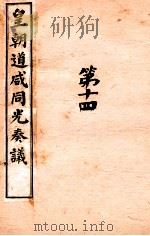 皇朝道咸同光奏議
第十四